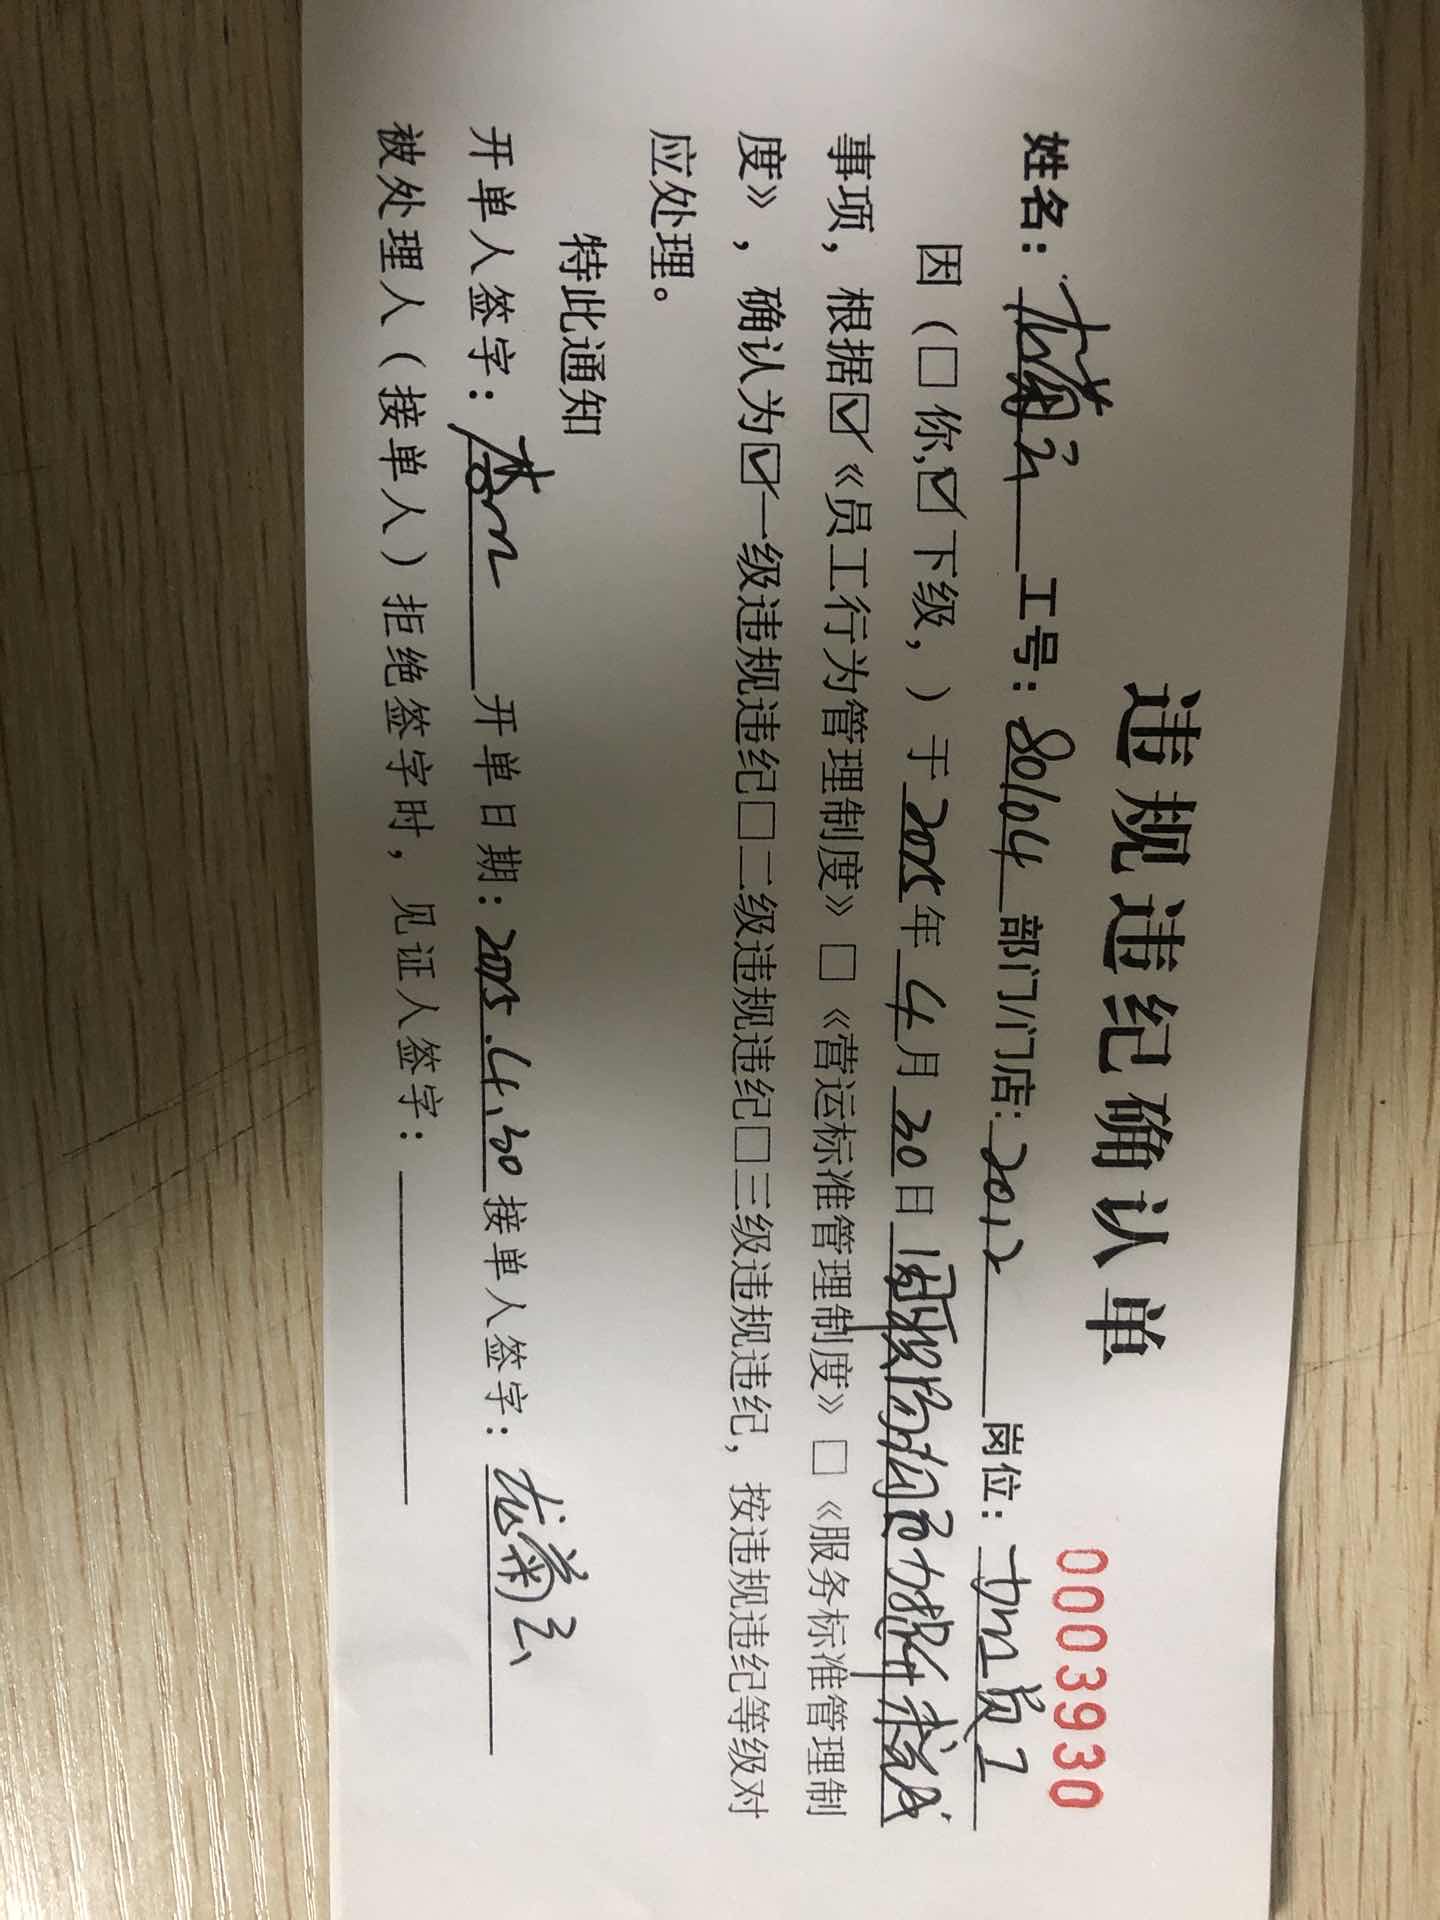 违规违纪确认单
0003930
姓名：龙菊云 工号：80104 部门/门店：2012 岗位：
因（□你，☑下级，）于2025年4月30日
事项，根据☑《员工行为管理制度》□《营运标准管理制度》□《服务标准管理制
度》，确认为☑一级违规违纪□二级违规违纪□三级违规违纪，按违规违纪等级对
应处理。
特此通知
开单人签字： 开单日期：2025.4.30 接单人签字：龙菊云
被处理人（接单人）拒绝签字时，见证人签字：